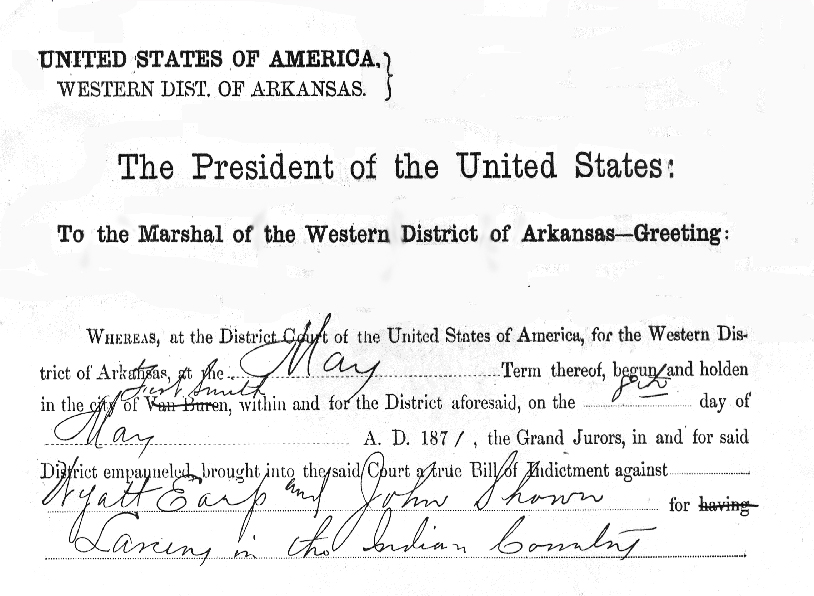 UNITED STATES OF AMERICA,}
WESTERN DIST. OF ARKANSAS.
The President of the United States:
To the Marshal of the Western District of Arkansas—Greeting:
WHEREAS, at the District Court of the United States of America, for the Western Dis-
trict of Arkansas, at the May Term thereof, begun and holden
Fort Smith
in the city of Van Buren, within and for the District aforesaid, on the 8th day of
May A. D. 1871, the Grand Jurors, in and for said
District empanneled, brought into the said Court a true Bill of Indictment against
Wyatt Earp and John Shown for having
Larceny in the Indian Country